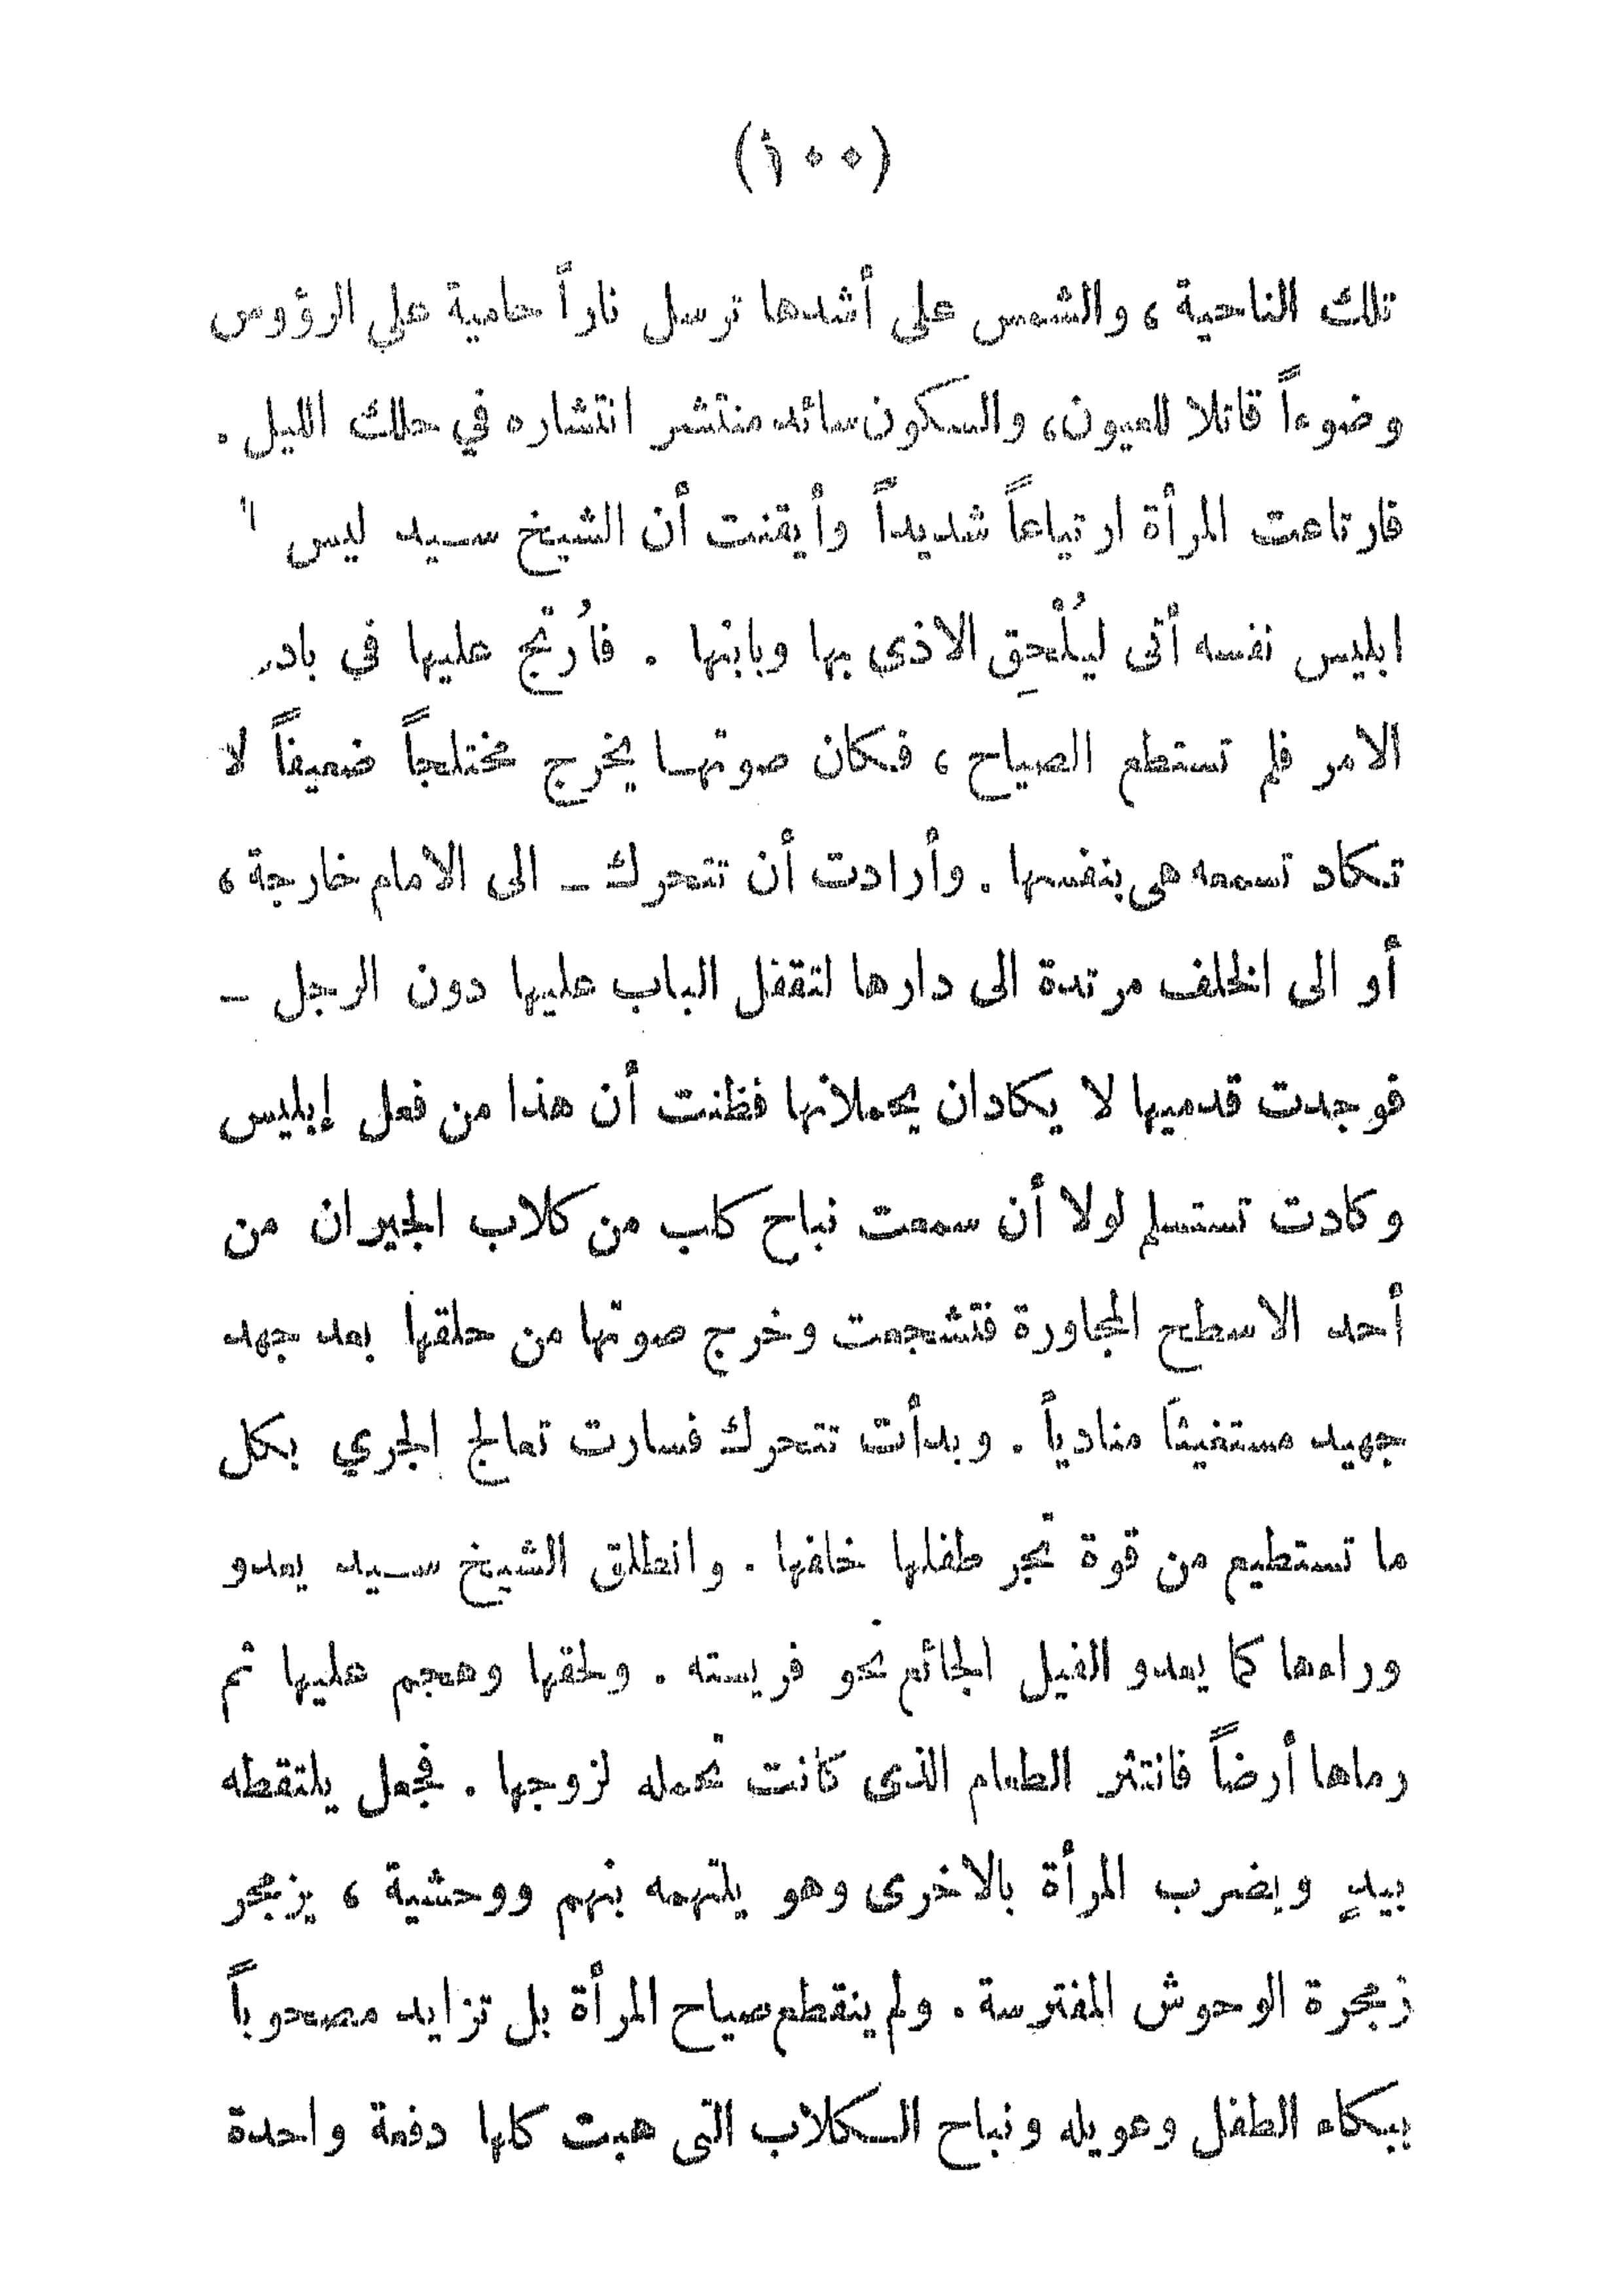 (١٠٠)
تلك الناحية ، والشمس على أشدها ترسل ناراً حامية على الرؤوس
وضوءاً قاتلا للعيون، والسكون سائد منتشر انتشاره في حلك الليل .
فارتاعت المرأة ارتياعاً شديداً وأيقنت أن الشيخ سيد ليس
ابليس نفسه أتى ليُلْحِق الاذى بها وبابنها . فأُرتج عليها في
الامر فلم تستطع الصياح ، فكان صوتها يخرج مختلجاً ضعيفاً لا
تكاد تسمعه هى بنفسها . وأرادت أن تتحرك - الى الامام خارجة ،
أو الى الخلف مرتدة الى دارها لتقفل الباب عليها دون الرجل -
فوجدت قدميها لا يكادان يحملانها فظنت أن هذا من فعل إبليس
وكادت تستسلم لولا أن سمعت نباح كلب من كلاب الجيران من
أحد الاسطح المجاورة فتشجعت وخرج صوتها من حلقها بعد جهد
جهيد مستغيثاً منادياً . وبدأت تتحرك فسارت تعالج الجري بكل
ما تستطيع من قوة تجر طفلها خلفها . وانطلق الشيخ سيد يعدو
وراءها كما يعدو الفيل الجائع نحو فريسته . ولحقها وهجم عليها ثم
رماها أرضاً فانتثر الطعام الذى كانت تحمله لزوجها . فجعل يلتقطه
بيدٍ ويضرب المرأة بالاخرى وهو يلتهمه بنهم ووحشية ، يزمجر
زمجرة الوحوش المفترسة . ولم ينقطع صياح المرأة بل تزايد مصحوباً
ببكاء الطفل وعويله ونباح الكلاب التى هبت كلها دفعة واحدة